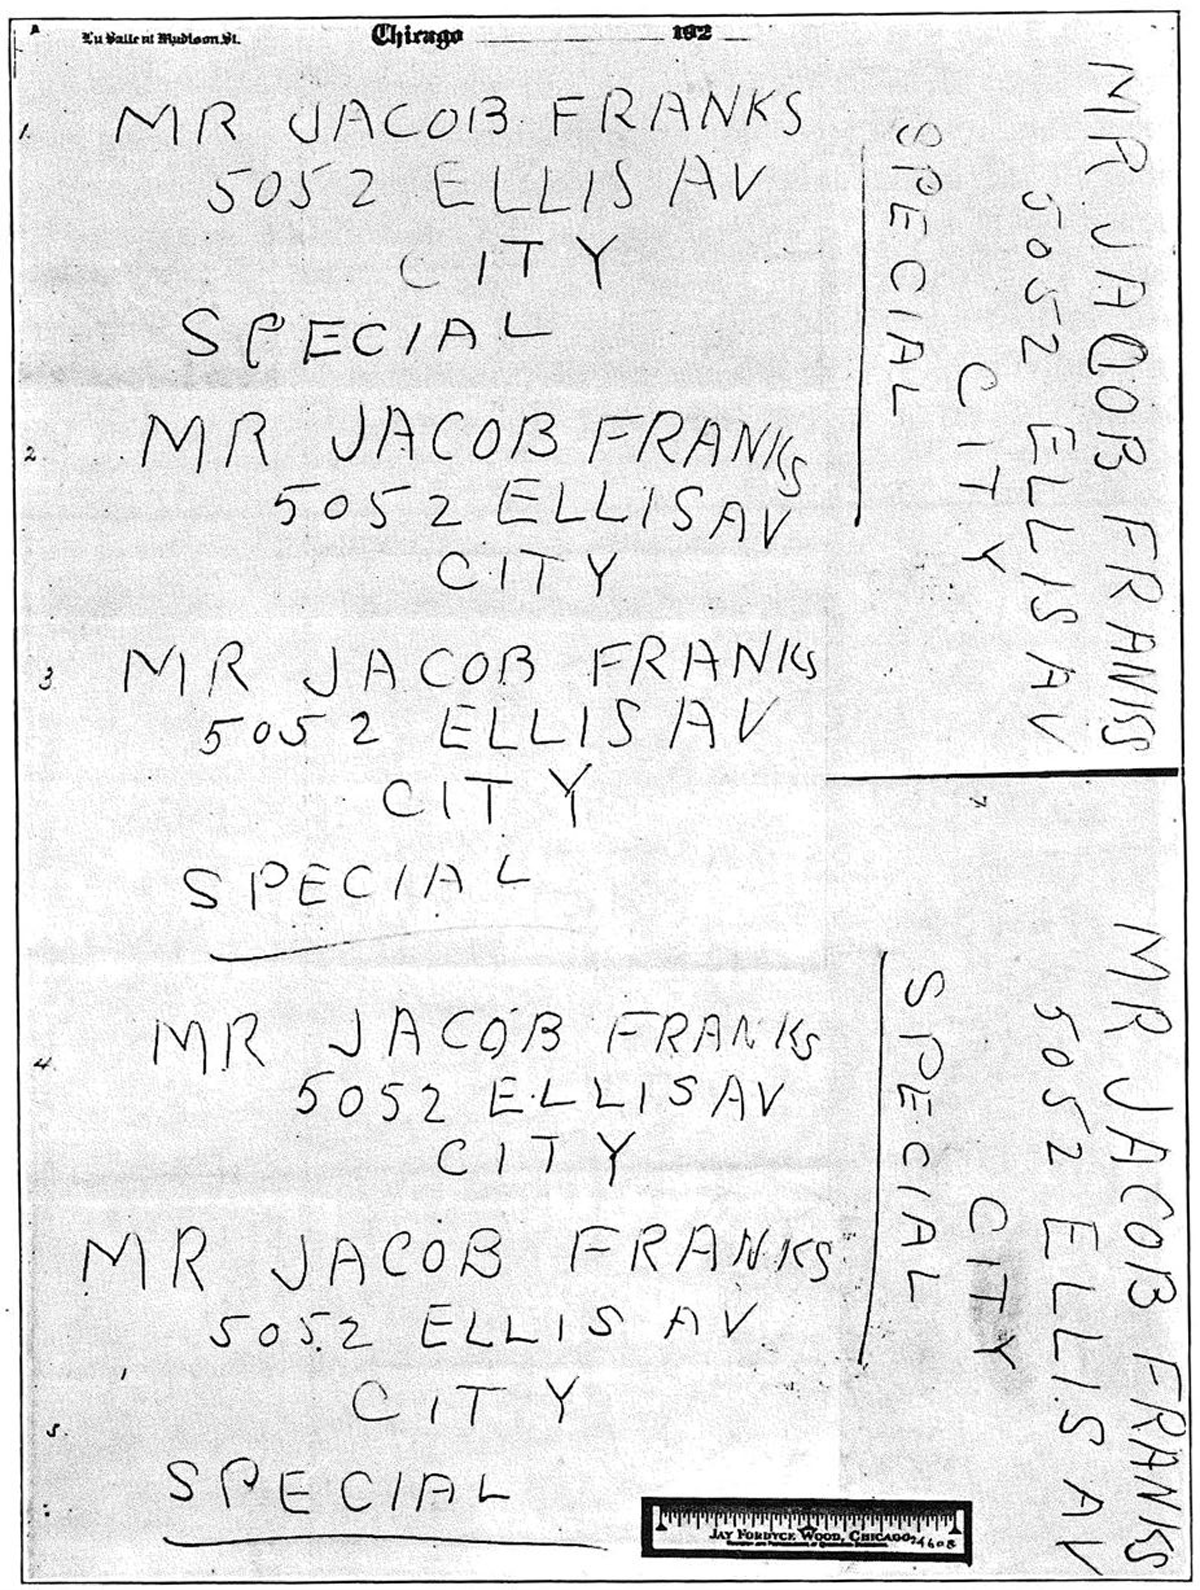 La Salle at Madison St.
Chicago 192
1.
MR JACOB FRANKS
5052 ELLIS AV
CITY
SPECIAL
2
MR JACOB FRANKS
5052 ELLIS AV
CITY
3
MR JACOB FRANKS
5052 ELLIS AV
CITY
SPECIAL
4.
MR JACOB FRANKS
5052 ELLIS AV
CITY
MR JACOB FRANKS
5052 ELLIS AV
CITY
5.
SPECIAL
MR JACOB FRANKS
5052 ELLIS AV
CITY
SPECIAL
MR JACOB FRANKS
5052 ELLIS AV
CITY
SPECIAL
JAY FORDYCE WOOD, CHICAGO